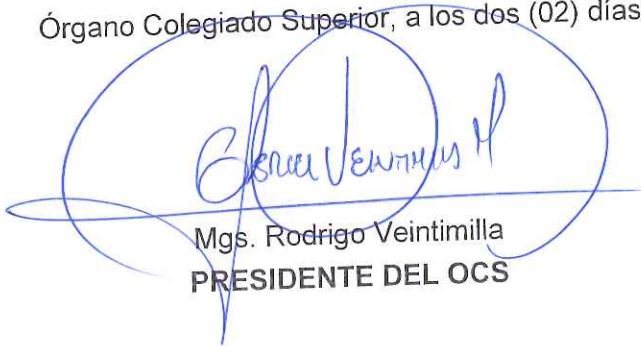 Órgano Colegiado Superior, a los dos (02) días
Mgs. Rodrigo Veintimilla
PRESIDENTE DEL OCS